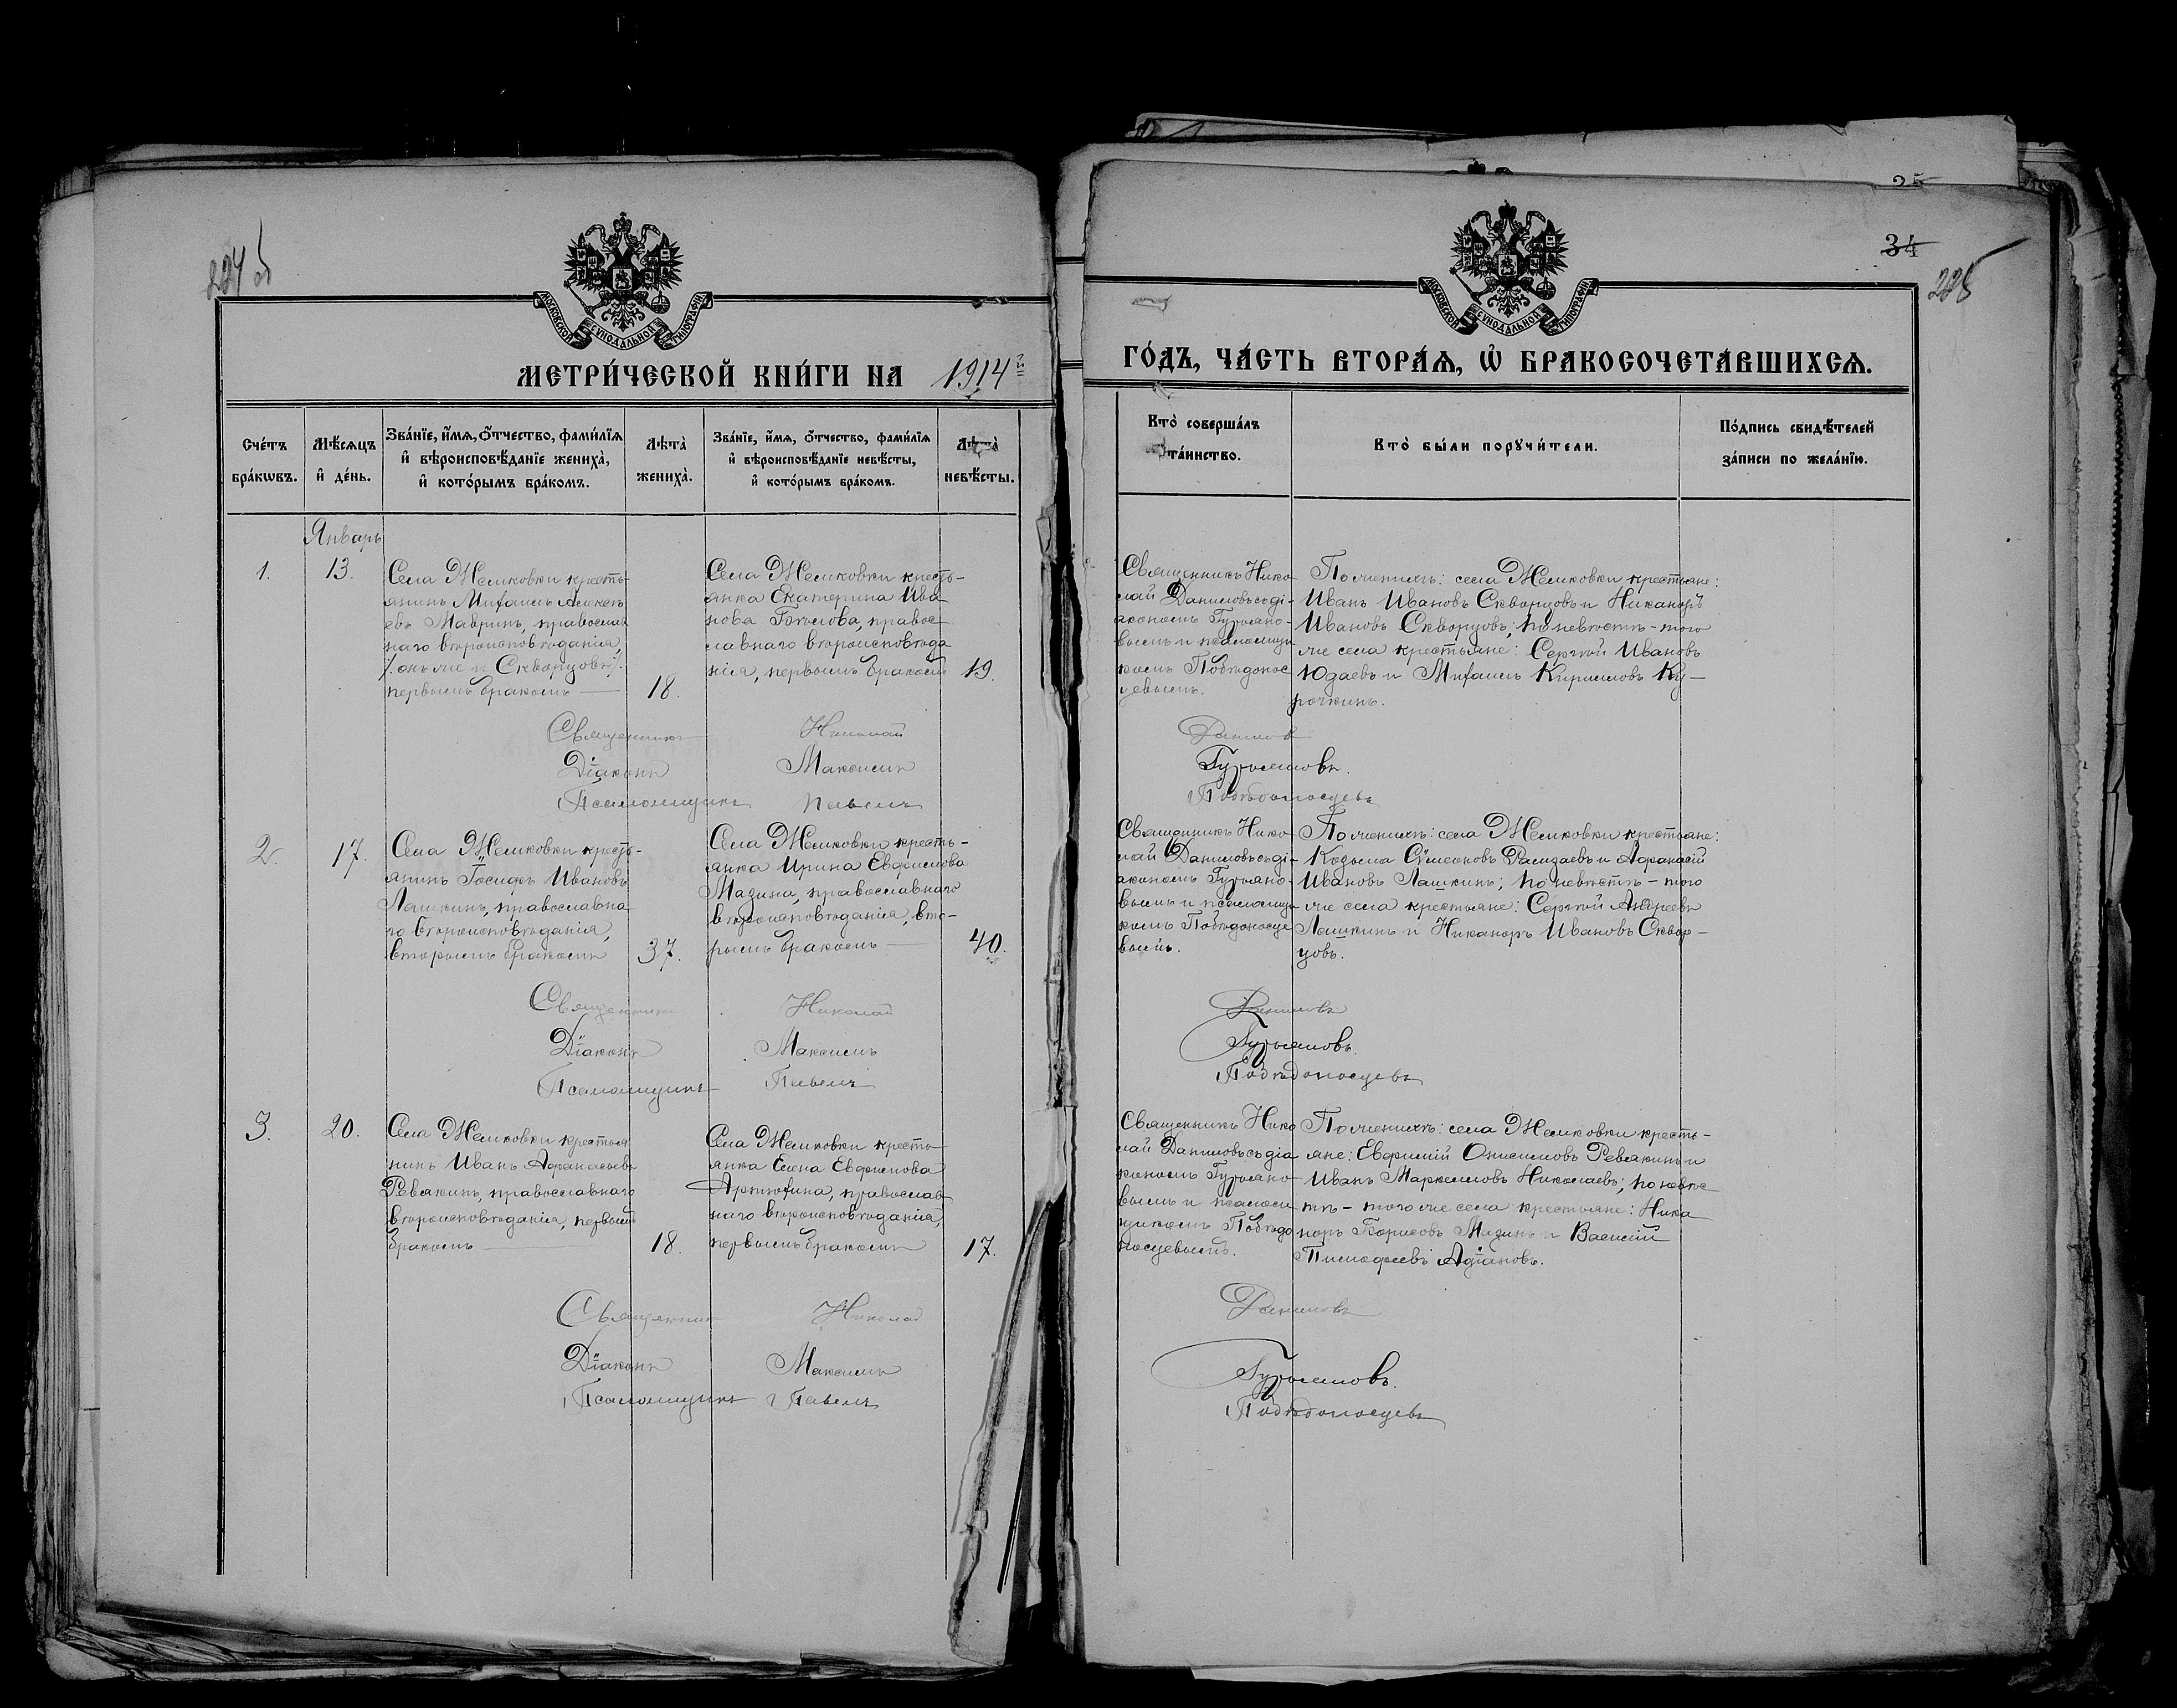 224 об
МОСКОВСКОЙ СУНОДАЛЬНОЙ ТИПОГРАФІИ
МЕТРИ́ЧЕСКОЙ КНИ́ГИ НА 1914й
Сче́тъ бра́кωвъ.
Мѣ́сяцъ и҆ де́нь.
Зва́нїе, и҆́мѧ, ѻ҆́тчество, фами́лїѧ и҆ вѣроисповѣ́данїе жениха̀, и҆ кото́рымъ бра́комъ.
Лѣта̀ жениха̀.
Зва́нїе, и҆́мѧ, ѻ҆́тчество, фами́лїѧ и҆ вѣроисповѣ́данїе невѣ́сты, и҆ кото́рымъ бра́комъ.
Лѣта̀ невѣ́сты.
Январь
1.
13.
Села Жемковки кресть-
янинъ Михаилъ Алексѣ
евъ Мавринъ, православ
наго вѣроисповѣданія,
/:онъ же и Скворцовъ:/
первымъ бракомъ —
18.
Села Жемковки кресть-
янка Екатерина Ива
нова Бѣлова, правос
лавнаго вѣроисповѣда
нія, первымъ бракомъ
19.
Священникъ Николай
Діаконъ Максимъ
Псаломщикъ Павелъ
2.
17.
Села Жемковки кресть-
янинъ Іосифъ Ивановъ
Лашкинъ, православна
го вѣроисповѣданія,
вторымъ бракомъ
37.
Села Жемковки кресть-
янка Ирина Евфимова
Мазина, православнаго
вѣроисповѣданія, вто-
рымъ бракомъ —
40.
Священникъ Николай
Діаконъ Максимъ
Псаломщикъ Павелъ
3.
20.
Села Жемковки крестья
нинъ Иванъ Афанасьевъ
Ревякинъ, православнаго
вѣроисповѣданія, первымъ
бракомъ —
18.
Села Жемковки кресть-
янка Елена Евфимова
Артюхина, православ
наго вѣроисповѣданія,
первымъ бракомъ
17.
Священникъ Николай
Діаконъ Максимъ
Псаломщикъ Павелъ
34
225
МОСКОВСКОЙ СУНОДАЛЬНОЙ ТИПОГРАФІИ
ГО́ДЪ, ЧА́СТЬ ВТОРА́Ѧ, Ѡ҆ БРАКОСОЧЕТА́ВШИХСѦ.
Кто̀ соверша́лъ та́инство.
Кто̀ бы́ли порꙋчи́тели.
По́дпись свидѣ́телей за́писи по жела́нїю.
Священникъ Нико
лай Даниловъ съ ді-
акономъ Гурьяно-
вымъ и псаломщи
комъ Побѣдонос
цевымъ.
По женихѣ: села Жемковки крестьяне:
Иванъ Ивановъ Скворцовъ и Никаноръ
Ивановъ Скворцовъ; по невѣстѣ - того
же села крестьяне: Сергѣй Ивановъ
Юдаевъ и Михаилъ Кирилловъ Ку-
рочкинъ.
Даниловъ
Гурьяновъ.
Побѣдоносцевъ
Священникъ Нико
лай Даниловъ съ ді-
акономъ Гурьяно-
вымъ и псаломщи
комъ Побѣдоносце
вымъ.
По женихѣ: села Жемковки крестьяне:
Козьма Симеоновъ Рамзаевъ и Афанасій
Ивановъ Лашкинъ; по невѣстѣ - того
же села крестьяне: Сергѣй Андреевъ
Лашкинъ и Никаноръ Ивановъ Сквор-
цовъ.
Даниловъ
Гурьяновъ.
Побѣдоносцевъ
Священникъ Нико
лай Даниловъ съ діа
кономъ Гурьяно-
вымъ и псаломщ
щикомъ Побѣдо
носцевымъ.
По женихѣ: села Жемковки кресть-
яне: Евфимій Онисимовъ Ревякинъ и
Иванъ Маркелловъ Николаевъ; по невѣс
тѣ - того же села крестьяне: Ника
норъ Борисовъ Мазинъ и Василій
Тимофеевъ Адіановъ.
Даниловъ
Гурьяновъ.
Побѣдоносцевъ